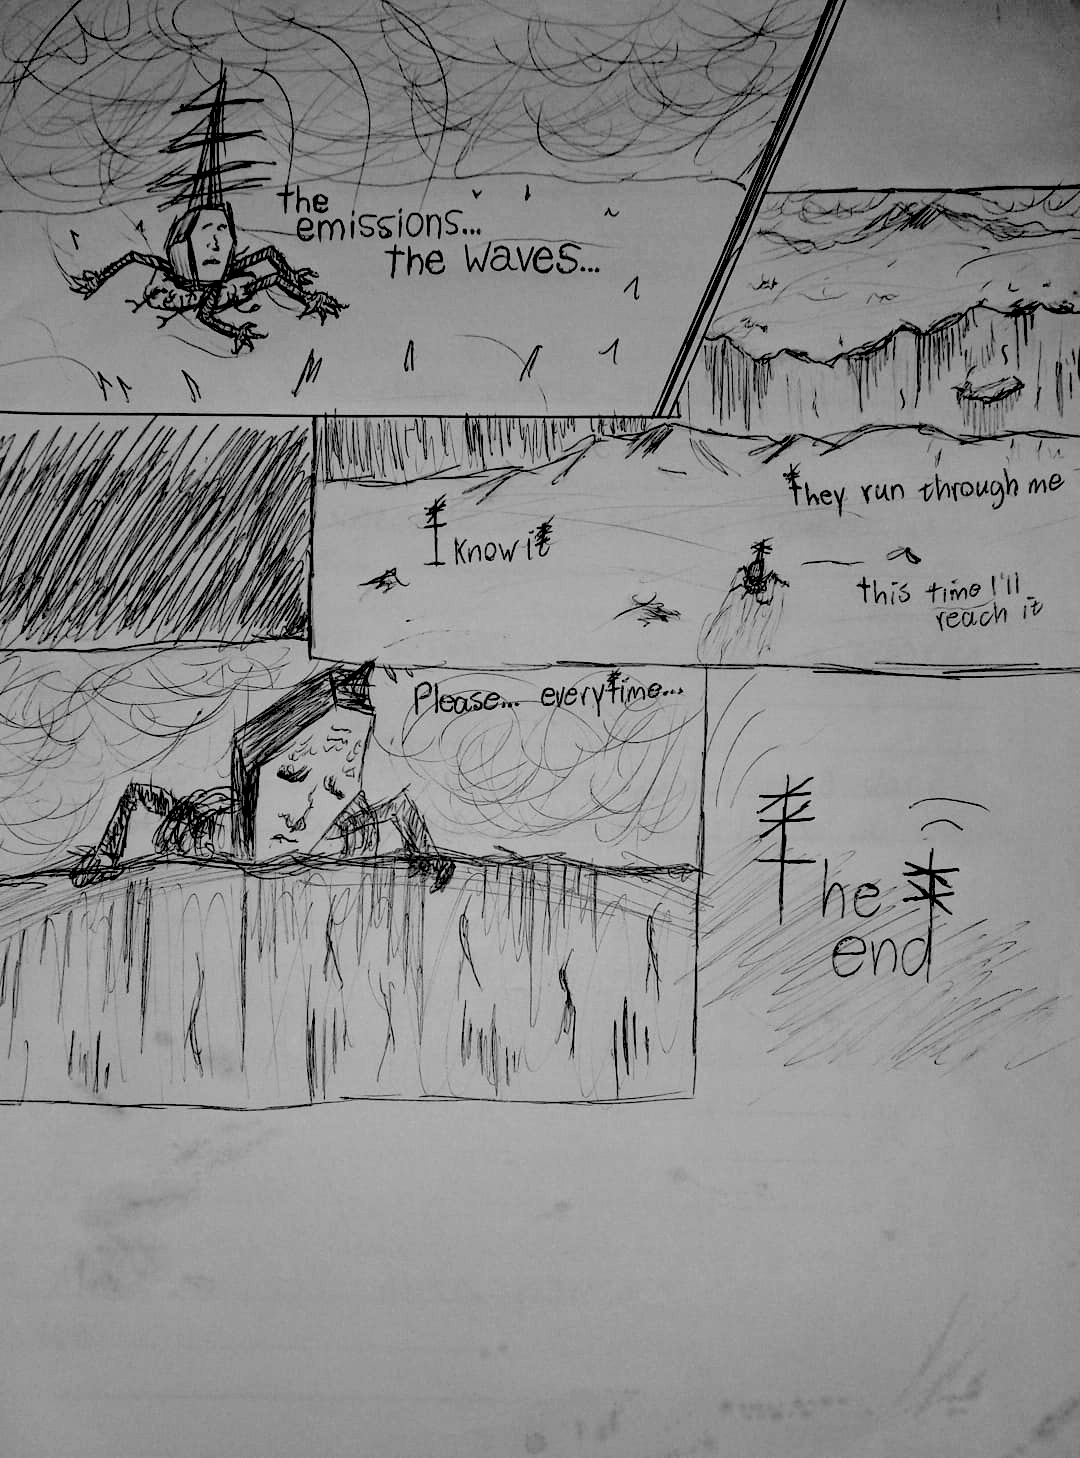 the
emissions...
the waves...
I know it
They run through me
this time I'll
reach it
Please... everytime...
The
end